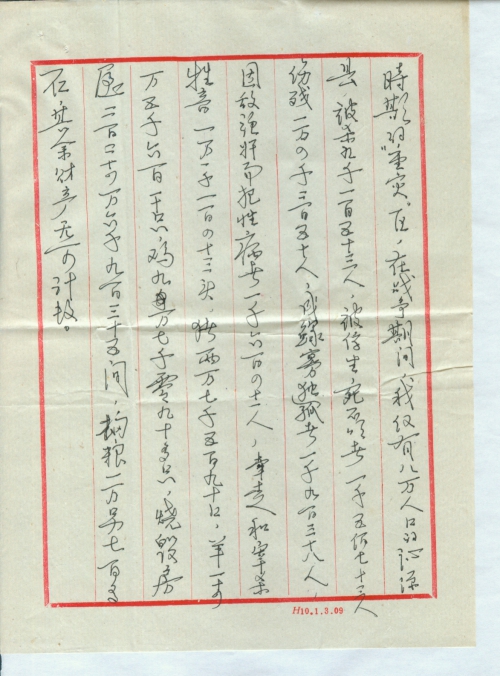 時期的"重灾区"，在战争期间，我仅有八万人口的沁源
县，被杀九千一百五十三人，被俘生死不明者一千五百七十三人
伤残一万四千三百五十人，成鳏寡独孤者一千九百三十八人，
因敌强奸而犯性病者一千六百四十一人，牵走和宰杀
牲畜一万一千一百四十三头，猪两万七千五百九十口，羊一
万五千六百 只，鸡九万七千零九十多只，烧毁房
屋二百二十 万六千九百三十五间，抢粮二万 七百多
石，其余财产无可计数。
H10.1.3.09